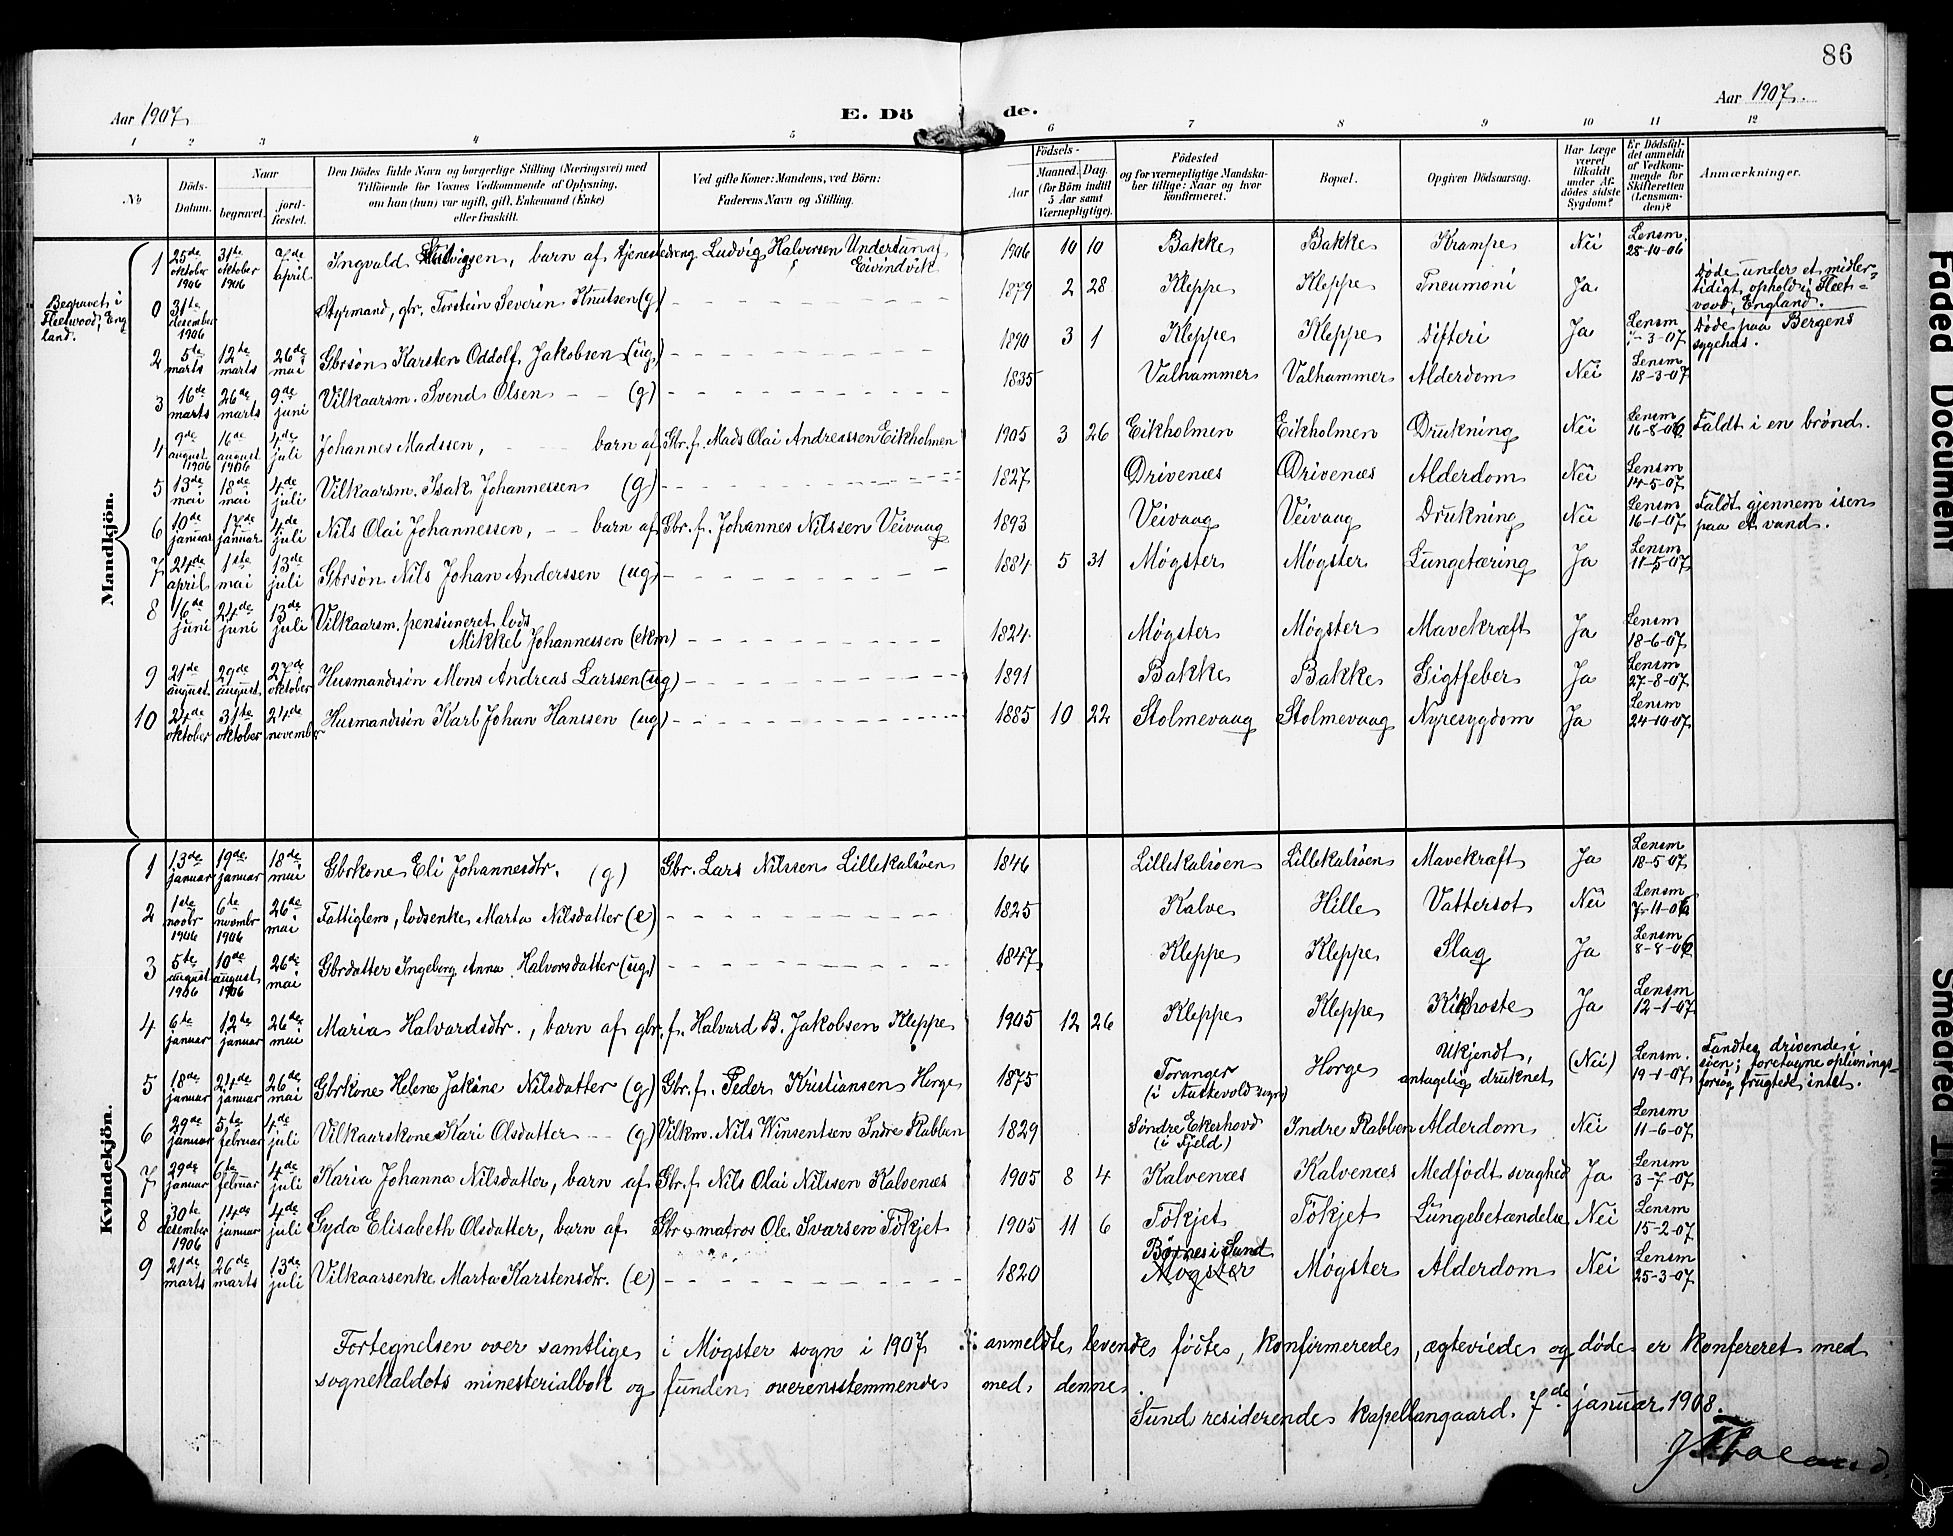 86
Aar 1907
E. Dö
de.
Aar 1907.
1 2 3 4 5 6 7 8 9 10 11 12
No
Döds-Datum.
Naar
begravet.
jord-fæstet.
Den Dödes fulde Navn og borgerlige Stilling (Næringsvei) med
Tilföiende for Voxnes Vedkommende af Oplysning,
om han (hun) var ugift, gift, Enkemand (Enke)
eller fraskilt.
Ved gifte Koner: Mandens, ved Börn:
Faderens Navn og Stilling.
Födsels-
Aar
Maaned. Dag.
(for Börn indtil
5 Aar samt
Værnepligtige).
Födested
og for værnepligtige Mandska-
ber tillige: Naar og hvor
konfirmeret.
Bopæl.
Opgiven Dödsaarsag.
Har Læge
været
tilkaldt
under Af-
dødes sidste
Sygdom?
Er Dödsfal-
det anmeldt
af Vedkom-
mende for
Skifteretten
(Lensman-
den)?
Anmærkninger.
Mandkjön.
1 25de oktober 1906 31te oktober 1906 de april Ingvald Ludvigsen, barn af tjenestedreng Ludvig Halvorsen Undertun af Eivindvik 1906 10 10 Bakke Bakke Krampe Nei Lensm. 28-10-06
Begravet i Fleetwood, England.
0 31te desember 1906 Styrmand, gbr. Torstein Severin Knutsen (g) 1879 2 28 Kleppe Kleppe Pneumoni Ja Døde under et midler-tidigt ophold i Fleet-wood, England.
2 5te marts 12te marts 26de mai Gbrsøn Karsten Oddolf Jakobsen (ug) 1890 3 1 Kleppe Kleppe Difteri Ja Lensm -3-07 Døde paa Bergens sygehus.
3 16de marts 26de marts 9de juni Vilkaarsm. Svend Olsen (g) 1835 Valhammer Valhammer Alderdom Nei Lensm 18-3-07
4 9de august 1906 16de august 1906 4de juli Johannes Madssen, barn af Gbr. f. Mads Olai Andreassen Eikholmen 1905 3 26 Eikholmen Eikholmen Drukning Nei Lensm 16-8-06 Faldt i en brønd.
5 13de mai 18de mai 4de juli Vilkaarsm. Isak Johannessen (g) 1827 Drivenæs Drivenæs Alderdom Nei Lensm 14-5-07
6 10de januar 17de januar 4de juli Nils Olai Johannessen, barn af Gbr. f. Johannes Nilssen Veivaag 1893 Veivaag Veivaag Drukning Nei Lensm 16-1-07 Faldt gjennem isen paa et vand.
7 24de april 1ste mai 13de juli Gbrsøn Nils Johan Anderssen (ug) 1884 5 31 Møgster Møgster Lungetæring Ja Lensm 11-5-07
8 16de juni 24de juni 13de juli Vilkaarsm. pensioneret lods
Mikkel Johannessen (ekm) 1824 Møgster Møgster Mavekræft Ja Lensm 18-6-07
9 21de august 29de august 27de oktober Husmandssøn Mons Andreas Larssen (ug) 1891 Bakke Bakke Gigtfeber Ja Lensm 27-8-07
10 24de oktober 31te oktober 24de november Husmandssøn Karl Johan Hanssen (ug) 1885 10 22 Stolmevaag Stolmevaag Nyresygdom Ja Lensm 24-10-07
Kvindekjön.
1 13de januar 19de januar 18de mai Gbrkone Eli Johannesdtr. (g) Gbr. Lars Nilssen Lillekalsøen 1846 Lillekalsøen Lillekalsøen Mavekræft Ja Lensm 18-5-07
2 1ste novbr 1906 6te novembr 1906 26de mai Fattiglem, lodsenke Marta Nilsdatter (e) 1825 Kalve Hille Vattersot Nei Lensm 7-11-06
3 5te august 1906 10de august 1906 26de mai Gbrdatter Ingeborg Anna Halvorsdatter (ug.) 1847 Kleppe Kleppe Slag Ja Lensm 8-8-06
4 6te januar 12te januar 26de mai Maria Halvardsdtr., barn af gbr. f. Halvard B. Jakobsen Kleppe 1905 12 26 Kleppe Kleppe Kikhoste Ja Lensm 12-1-07
5 18de januar 24de januar 26de mai Gbrkone Helene Jakine Nilsdatter (g) Gbr. f. Peder Kristiansen Horge 1875 Toranger (i Austevold sogn) Horge Ukjendt, antagelig druknet (Nei) Lensm. 19-1-07 Fandtes drivende i søen; foretagne oplivnings-forsøg frugtede intet.
6 29de januar 5te februar 4de juli Vilkaarskone Kari Olsdatter (g) Vilkm. Nils Winsentsen Indre Rabben 1829 Søndre Ekerhovd (i Fjeld) Indre Rabben Alderdom Nei Lensm 11-6-07
7 29de januar 6te februar 4de juli Karia Johanna Nilsdatter, barn af Gbr. f. Nils Olai Nilssen Kalvenæs 1905 8 4 Kalvenæs Kalvenæs Medfødt svaghed Ja Lensm 3-7-07
8 30te desember 1906 14de januar 4de juli Gyda Elisabeth Olsdatter, barn af Gbr & matros Ole Ivarsen Tøkjet 1905 11 6 Tøkjet Tøkjet Lungebetændelse Nei Lensm 15-2-07
9 21de marts 26de marts 13de juli Vilkaarsenke Marta Karstensdtr. (e) 1820 Børnes i Sund Møgster Møgster Alderdom Nei Lensm 25-3-07
Fortegnelsen over samtlige i Møgster sogn i 1907 anmeldte levende føtte, konfirmerede, ægteviede og døde er konfereret med
sognekaldets ministerialbok og funden overensstemmende med denne.
Sund residerende kapellangaard, 7de januar 1908.
Faded Document
Smeared Ink